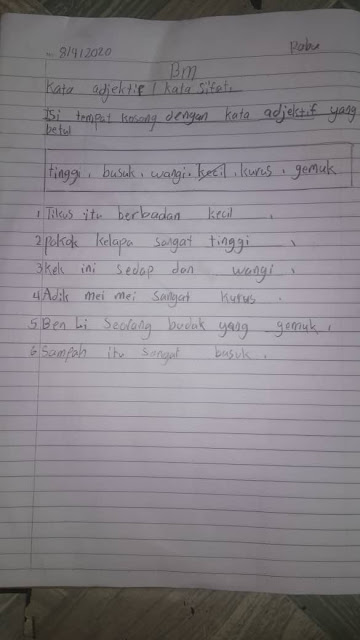 8/4/2020 Rabu
BM
Kata adjektif / Kata Sifat.
Isi tempat kosong dengan kata adjektif yang
betul
tinggi, busuk, wangi, kecil, kurus, gemuk
1 Tikus itu berbadan kecil.
2 pokok kelapa sangat tinggi.
3 kek ini sedap dan wangi.
4 Adik mei mei sangat kurus.
5 Ben Li Seorang budak yang gemuk.
6 Sampah itu sangat busuk.